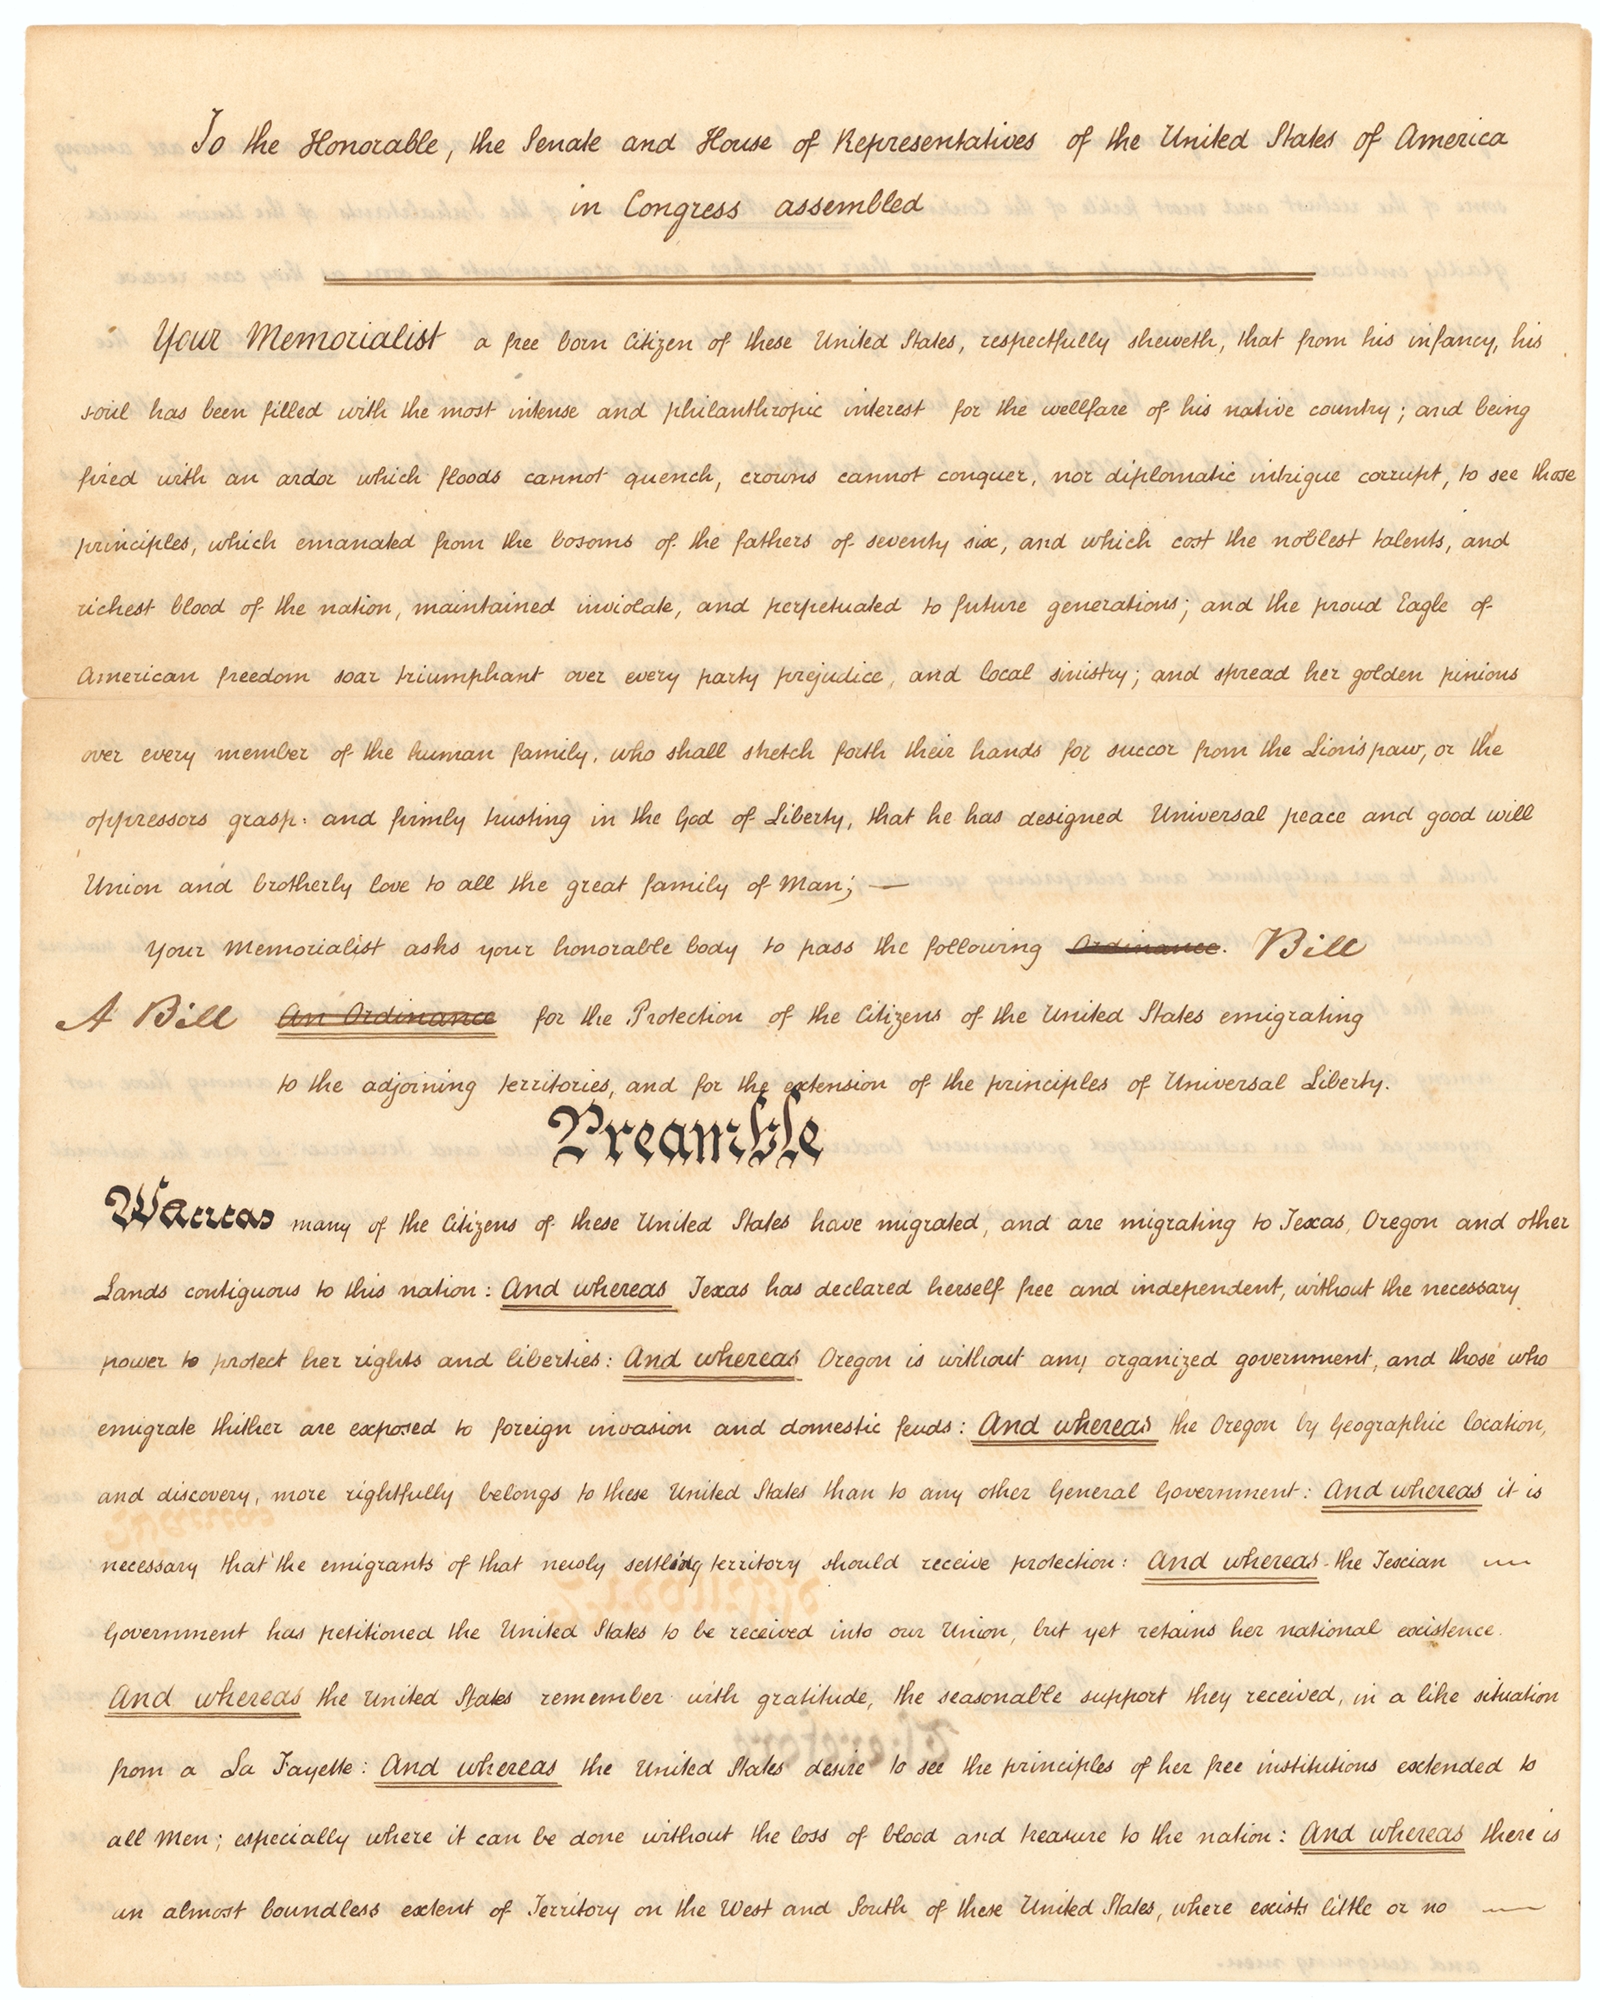 To the Honorable, the Senate and House of Representatives of the United States of America
in Congress assembled
Your Memorialist a free born Citizen of these United States, respectfully sheweth, that from his infancy, his
soul has been filled with the most intense and philanthropic interest for the wellfare of his native country; and being
fired with an ardor which floods cannot quench, crowns cannot conquer, nor diplomatic intrigue corrupt, to see those
principles, which emanated from the bosoms of the fathers of seventy six, and which cost the noblest talents, and
richest blood of the nation, maintained inviolate, and perpetuated to future generations; and the proud Eagle of
American freedom soar triumphant over every party prejudice, and local sinistry; and spread her golden pinions
over every member of the human family, who shall stretch forth their hands for succor from the Lion's paw, or the
oppressors grasp: and firmly trusting in the God of Liberty, that he has designed Universal peace and good will
Union and brotherly love to all the great family of Man; —
Your Memorialist asks your honorable body to pass the following Ordinance. Bill
A Bill An Ordinance for the Protection of the Citizens of the United States emigrating
to the adjoining territories, and for the extension of the principles of Universal Liberty.
Preamble
Whereas many of the Citizens of these United States have migrated, and are migrating to Texas, Oregon and other
Lands contiguous to this nation: And whereas Texas has declared herself free and independent, without the necessary
power to protect her rights and liberties: And whereas Oregon is without any organized government, and those who
emigrate thither are exposed to foreign invasion and domestic feuds: And whereas the Oregon by Geographic location,
and discovery, more rightfully belongs to these United States than to any other General Government: And whereas it is
necessary that the emigrants of that newly settling territory should receive protection: And whereas the Texian —
Government has petitioned the United States to be received into our Union, but yet retains her national existence.
And whereas the United States remember with gratitude, the seasonable support they received, in a like situation
from a La Fayette: And whereas the United States desire to see the principles of her free institutions extended to
all Men; especially where it can be done without the loss of blood and treasure to the nation: And whereas there is
an almost boundless extent of Territory on the West and South of these United States, where exists little or no —